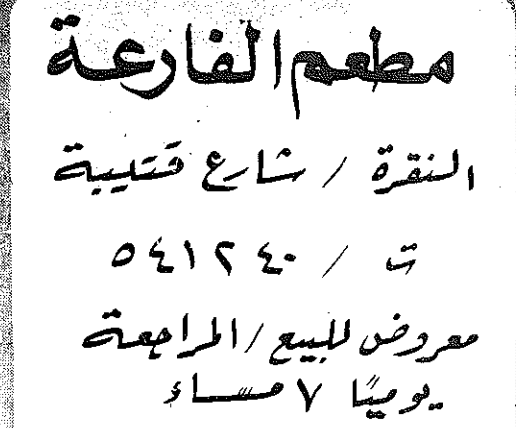 مطعم الفارعة
النقرة / شارع قتيبة
ت / ٥٤١٢٤٠
معروض للبيع / المراجعة
يوميًا ٧ مساء